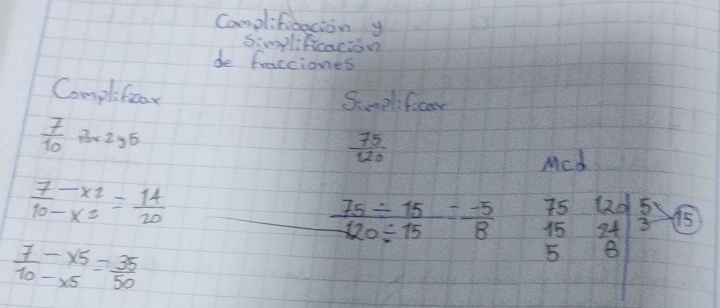 Complificación y
Simplificación
de fracciones
Complificar
7/10 por 2 y 5
7/10 - x2 / - x2 = 14/20
7/10 - x5 / - x5 = 35/50
Simplificar
75/120
75 ÷ 15 / 120 ÷ 15 = -5/8
Mcd
75 120 | 5
15 24 | 3 15
5 8